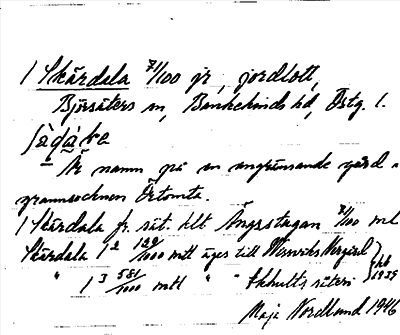 1 Skärdala 71/100 jr, jordlott,
Björsäters sn, Bankekinds hd, Östg. l.
Är namn på en angränsande gård
grannsocknen Örtomta.
1 Skärdala fr. sät. hlt Ängsstugan 71/100 mtl
Skärdala 1² 129/1000 mtl äges till
" 1³ 581/1000 mtl " " säteri
1939
Maja Nordlund 1946